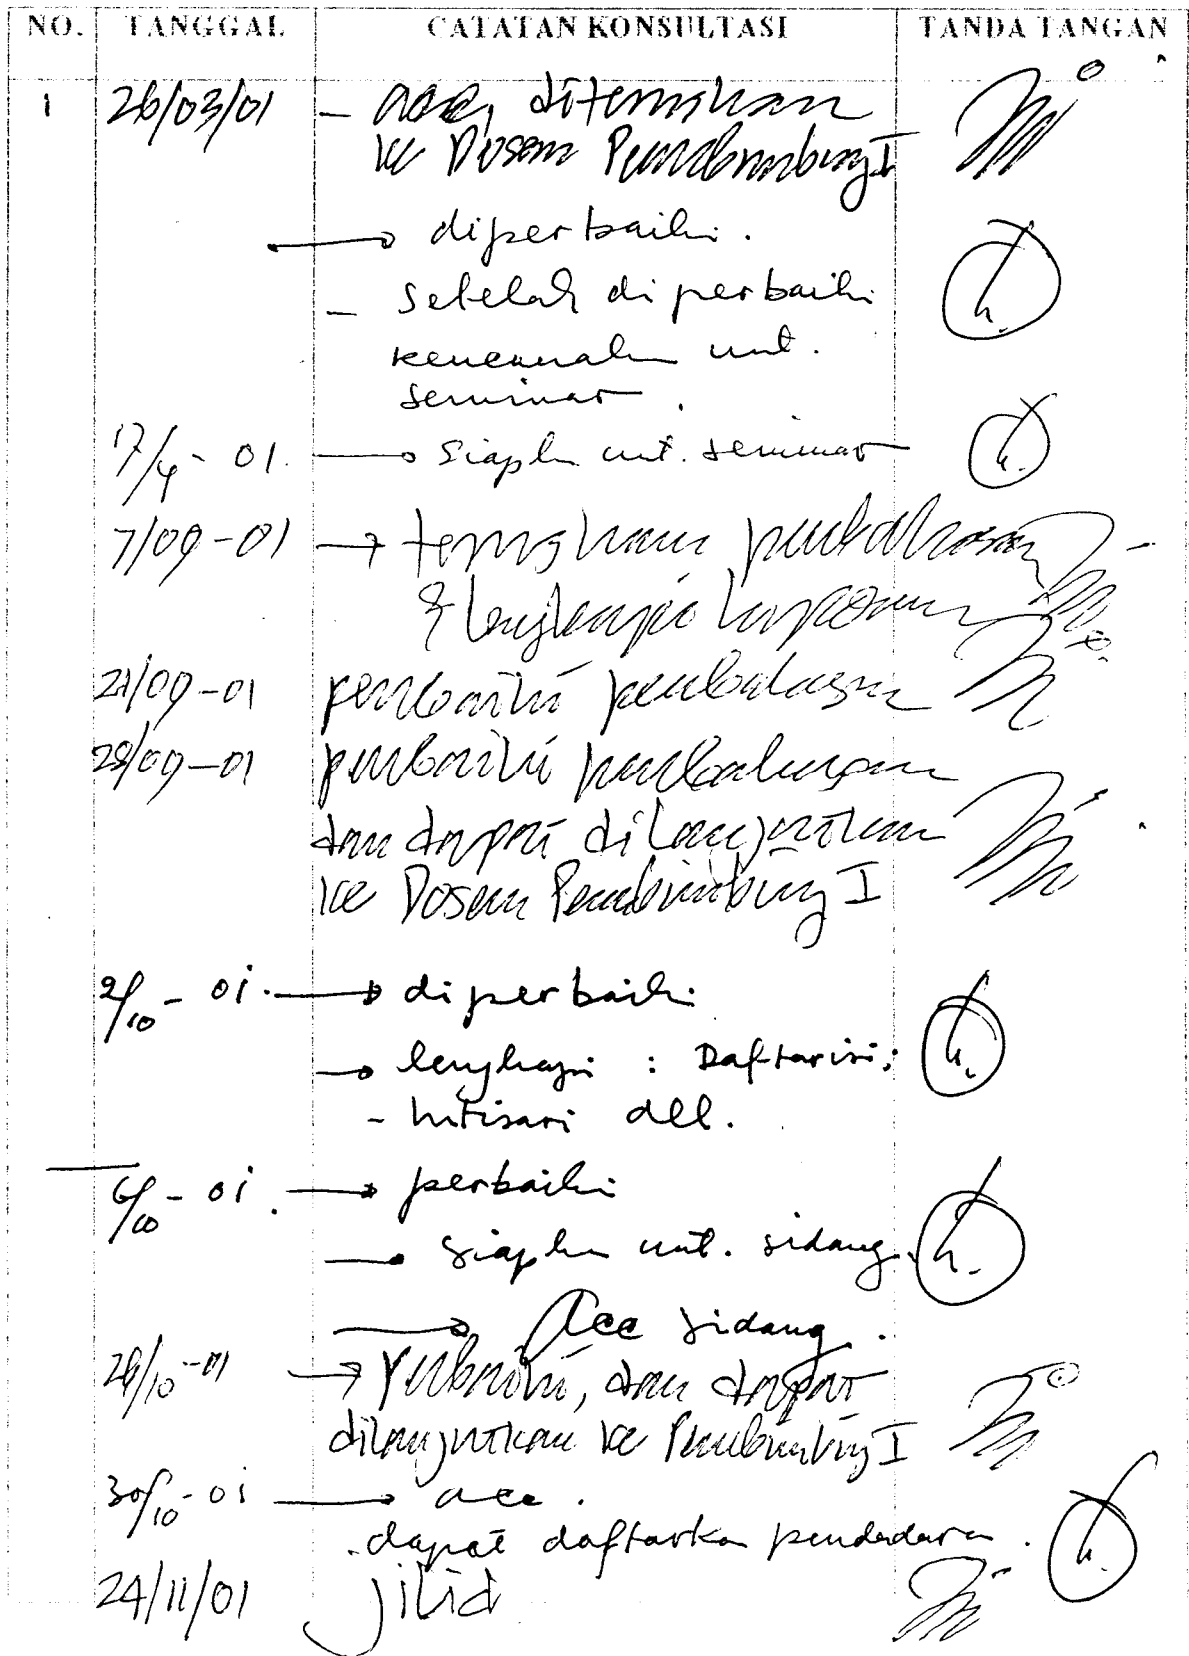 NO. TANGGAL CATATAN KONSULTASI TANDA TANGAN
1 26/03/01 - acc, diteruskan
ke Dosen Pembimbing I
→ diperbaiki.
- setelah diperbaiki
rencanakan unt.
seminar.
17/4 - 01. → siapkan unt. seminar
7/09-01 → pembahasan
& lengkapi laporan
21/09-01 perbaiki pembahasan
28/09-01 perbaiki pembahasan
dan dapat dilanjutkan
ke Dosen Pembimbing I
2/10 - 01. → diperbaiki
→ lengkapi : Daftar isi;
- Intisari dll.
6/10 - 01. → perbaiki
→ siapkan unt. sidang.
→ Acc sidang.
26/10-01 → perbaiki, dan dapat
dilanjutkan ke Pembimbing I
30/10-01 → acc.
. dapat daftarkan pendadaran.
24/11/01 jilid